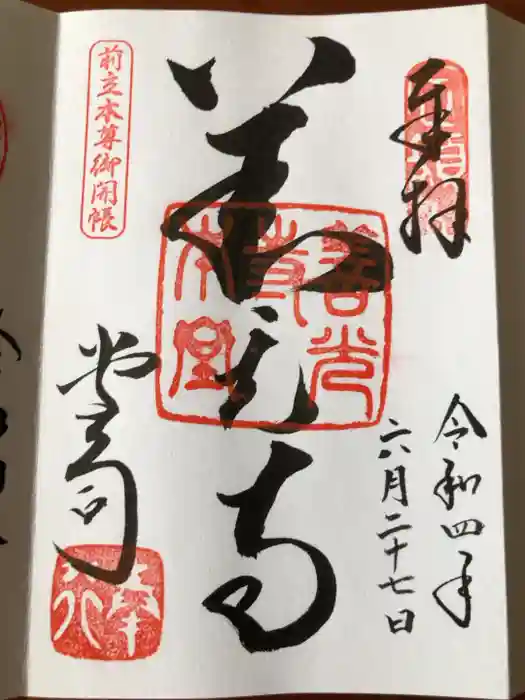 奉拝
令和四年
六月二十七日
善光寺
善光寺本堂
前立本尊御開帳
堂司